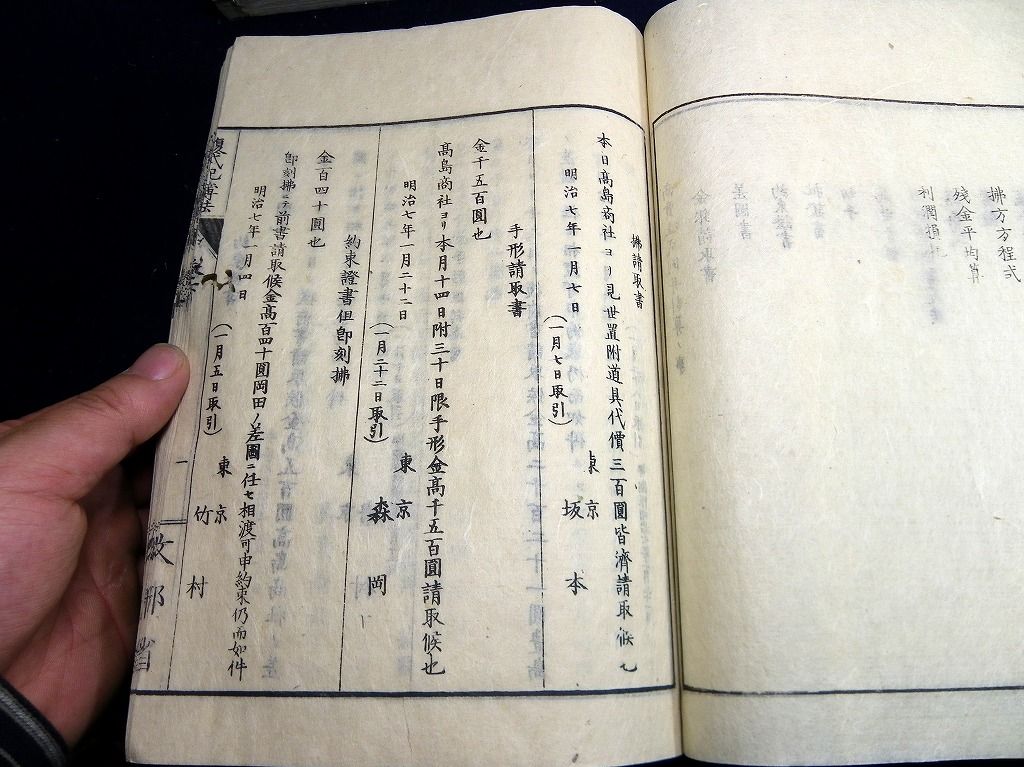 拂方方程式
殘金平均算
利潤損
拂請取書
本日髙島商社ヨリ見世置附道具代價三百圓皆濟請取候也
明治七年一月七日
(一月七日取引)
東京
坂本
手形請取書
金千五百圓也
髙島商社ヨリ本月十四日附三十日限手形金髙千五百圓請取候也
明治七年一月二十二日
(一月二十二日取引)
東京
森岡
約束證書但卽刻拂
金百四十圓也
卽刻拂ニテ前書請取候金髙百四十圓岡田ノ差圖ニ任セ相渡可申約束仍而如件
明治七年一月四日
(一月五日取引)
東京
竹村
複式記簿法
一
文部省